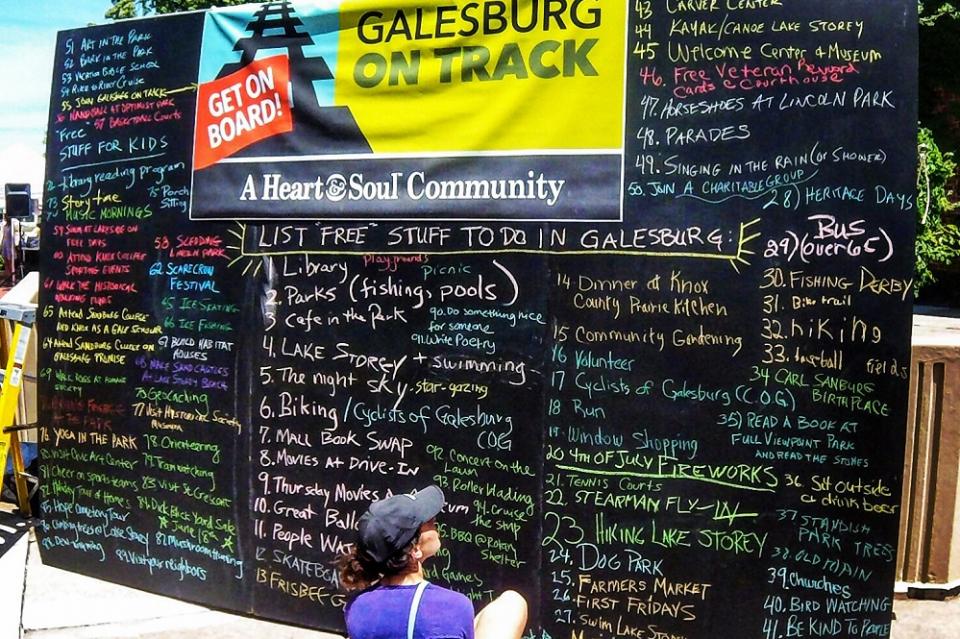 GALESBURG
ON TRACK
GET ON
BOARD!
A Heart & Soul Community
LIST "FREE" STUFF TO DO IN GALESBURG:
51 ART IN THE PARK
52 BARK IN THE PARK
53 VACATION BIBLE SCHOOL
54 RIVER CRUISE
55 JOIN GALESBURG ON TRACK
56 HANDBALL AT OPTIMIST PARK
57 BASKETBALL COURTS
"Free"
STUFF FOR KIDS
Library reading program
73 Story time
75 Porch
Sitting
MUSIC MORNINGS
59 SWIM AT LAKESIDE ON
FREE DAYS
60 ATTEND KNOX COLLEGE
SPORTING EVENTS
61 WALK THE HISTORICAL
58 SLEDDING
62 SCARECROW
FESTIVAL
65 ICE SKATING
66 ICE FISHING
63 Attend SANDBURG COLLEGE
AND KNOX AS A GALE SCHOLAR
64 Attend SANDBURG COLLEGE ON
GALESBURG PROMISE
67 BUILD HABITAT
HOUSES
68 MAKE SANDCASTLES
AT LAKE STOREY BEACH
69 WALK DOGS AT HUMANE
SOCIETY
Geocaching
77 Visit HISTORICAL SOCIETY
MUSEUM
76 YOGA IN THE PARK
78 Orienteering
79 Train watching
80 Visit Civic Art Center
81 Cheer on sports teams
83 visit St Crescent
82 Holiday Tour of Homes
84 Dick Black Yard Sale
June 18th
85 Hope Cemetery Tour
87 Mushroom hunting
99 Visit your neighbors
1. Library
Playgrounds
Picnic
2. Parks (fishing, pools)
3 Cafe in the Park
90. Do something nice
for someone
91. Write Poetry
4. LAKE STOREY + swimming
5. The night sky - star-gazing
6. Biking / Cyclists of Galesburg
COG
7. MALL BOOK SWAP
8. MOVIES AT DRIVE-IN
9. Thursday Movies
10. Great
11. People
12. SKATEBOA
13 FRISBEE G
92. Concert on the
Lawn
93 Roller blading
94. Cruise
the strip
95 BBQ @ Rotary
Shelter
14 Dinner at Knox
County Prairie Kitchen
15 Community Gardening
16 Volunteer
17 Cyclists of Galesburg (C.O.G)
18 Run
19. Window Shopping
20 4TH OF JULY FIREWORKS
21. TENNIS COURTS
22. STEARMAN FLY-IN
23 HIKING LAKE STOREY
24. DOG PARK
25. FARMERS MARKET
26. FIRST FRIDAYS
27. SWIM LAKE
43 CARVER CENTER
44 KAYAK/CANOE LAKE STOREY
45 Welcome Center & Museum
46. Free Veteran Reward
Cards @ Courthouse
47. HORSESHOES AT LINCOLN PARK
48. PARADES
49. SINGING IN THE RAIN (OR SHOWER)
50. JOIN A CHARITABLE GROUP
28) HERITAGE DAYS
29) Bus
(over 65)
30. FISHING DERBY
31. Bike trail
32. hiking
33. baseball fields
34 CARL SANBURG
BIRTHPLACE
35) READ A BOOK AT
FULL VIEWPOINT PARK
AND READ THE STONES
36. Sit outside
& drink beer
37. STANDISH
PARK TREES
38. OLD MAIN
39. Churches
40. BIRD WATCHING
41. BE KIND TO PEOPLE